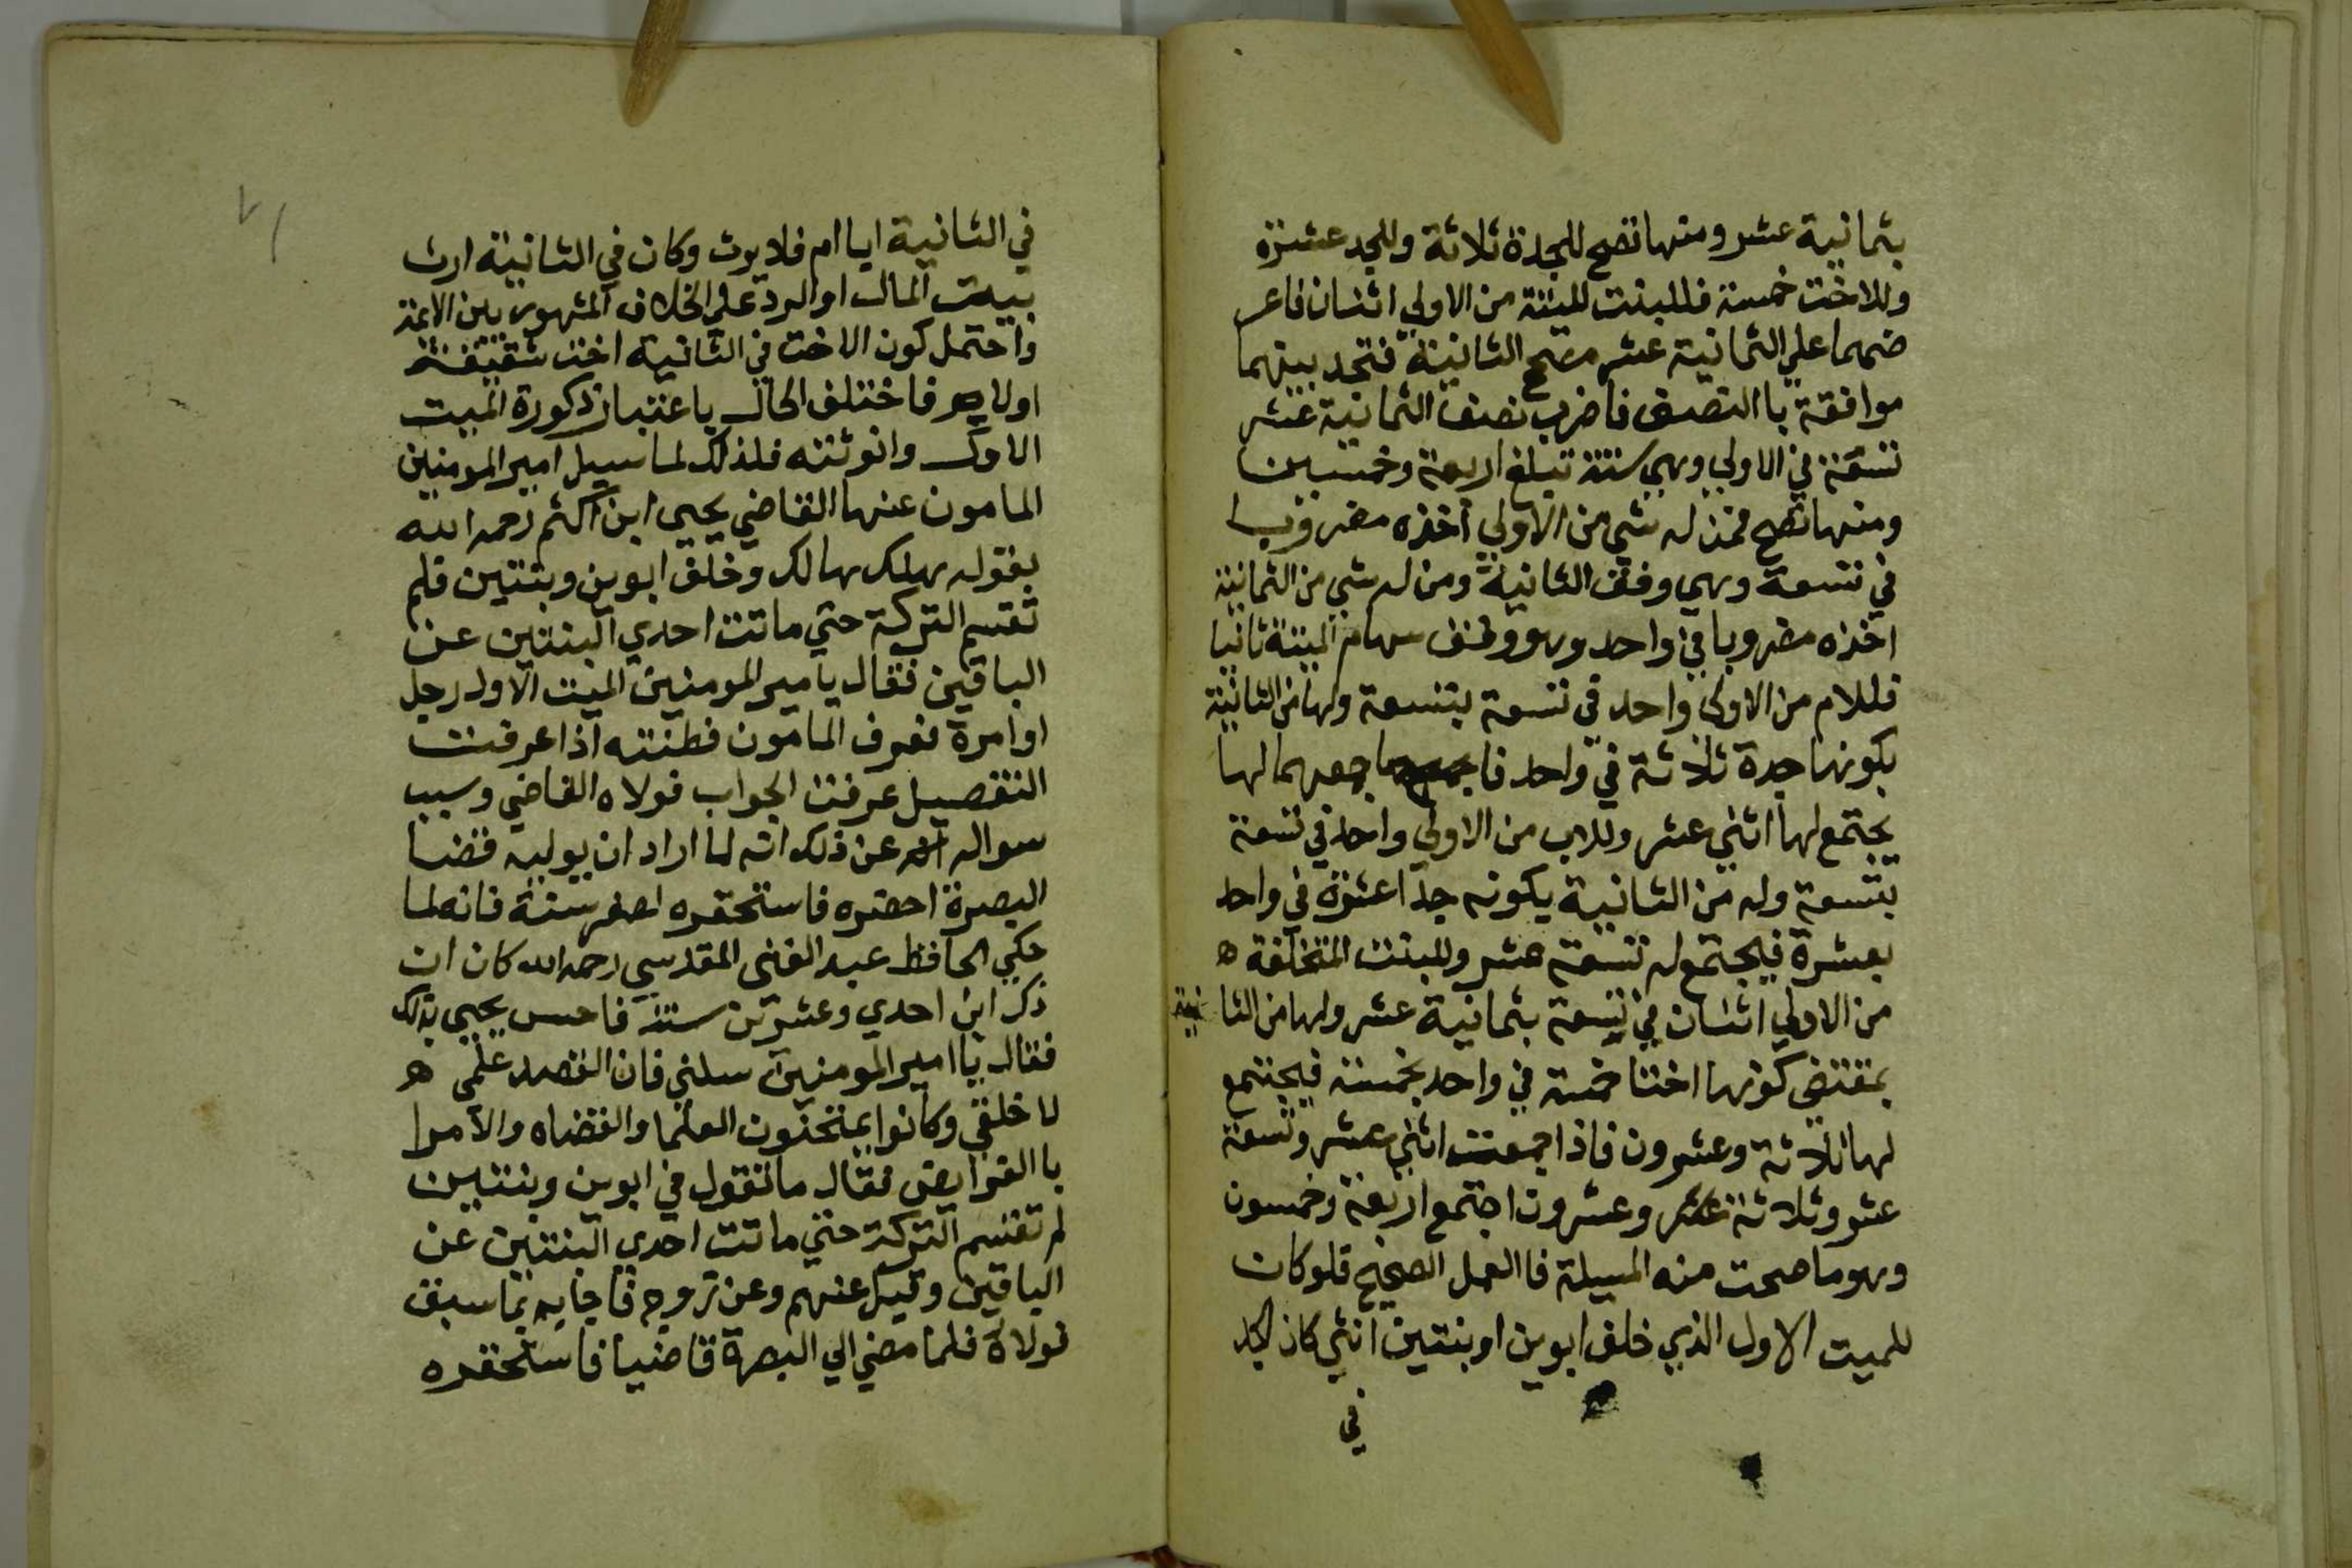 بثمانية عشر ومنها تصح للجدة ثلاثة وللجد عشرة
وللاخت خمسة فللبنت الميتة من الاولي اثنان فاعر
ضهما علي الثمانية عشر مصح الثانية فتجد بينهما
موافقة باالنصف فاضرب نصف الثمانية عشر
تسعة في الاولي وهي ستة تبلغ اربعة وخمسين
ومنها تصح فمن له شي من الاولي اخذه مضروبا
في تسعة وهي وفق الثانية ومن له شي من الثمانية
اخذه مضروبا في واحد وهو وفق سهام الميتة ثانيا
فللام من الاولي واحد في تسعة بتسعة ولها من الثانية
بكونها جدة ثلاثة في واحد فا جمعهما لها
يجتمع لها اثني عشر وللاب من الاولي واحد في تسعة
بتسعة وله من الثانية يكونه جدا عشرة في واحد
بعشرة فيجتمع له تسعة عشر وللبنت المتخلفة ه
من الاولي اثنان في تسعة بثمانية عشر ولها من الثانية
بمقتضي كونها اختا خمسة في واحد بخمسة فيجتمع
لها ثلاثة وعشرون فاذا جمعت اثني عشر وتسعة
عشر وثلاثة عشر وعشرون اجتمع اربعة وخمسون
وهو ما صحت منه المسيلة فاالعمل الصحيح فلو كان
للميت الاول الذي خلف ابوين او بنتين انثي كان الجد
في
في الثانية ابا ام فلا يرث وكان في الثانية ارث
بيت المال او الرد علي الخلاف المشهور بين الايمة
واحتمل كون الاخت في الثانية اخت شقيقة
او لام فاختلف الحال باعتبار ذكورة الميت
الاول وانوثته فلذلك لما سيل امير المومنين
المامون عنها القاضي يحيي ابن اكثم رحمه الله
بقوله هلك هالك وخلف ابوين وبنتين فلم
تقسم التركة حتي ماتت احدي البنتين عن
الباقين فقال يامير المومنين الميت الاول رجل
او امرة فعرف المامون فطنته اذا عرفت
التفصيل عرفت الجواب فولاه القاضي وسبب
سواله عن ذلك انه لما اراد ان يوليه قضا
البصرة احضره فاستحقره لصغر سنه فانه لما
حكي الحافظ عبد الغني المقدسي رحمه الله كان ان
ذك ابن احدي وعشرين سنة فاحس يحيي بذلك
فقال يا امير المومنين سلني فان القصد علمي ه
لا خلقي وكانوا يمتحنون العلما والقضاه والامرا
باالفرايض فقال ما تقول في ابوين وبنتين
لم تقسم التركة حتي ماتت احدي البنتين عن
الباقين وقيل عنهم وعن زوج فاجابه بما سبق
فولاه فلما مضي الي البصرة قاضيا فاستحقره